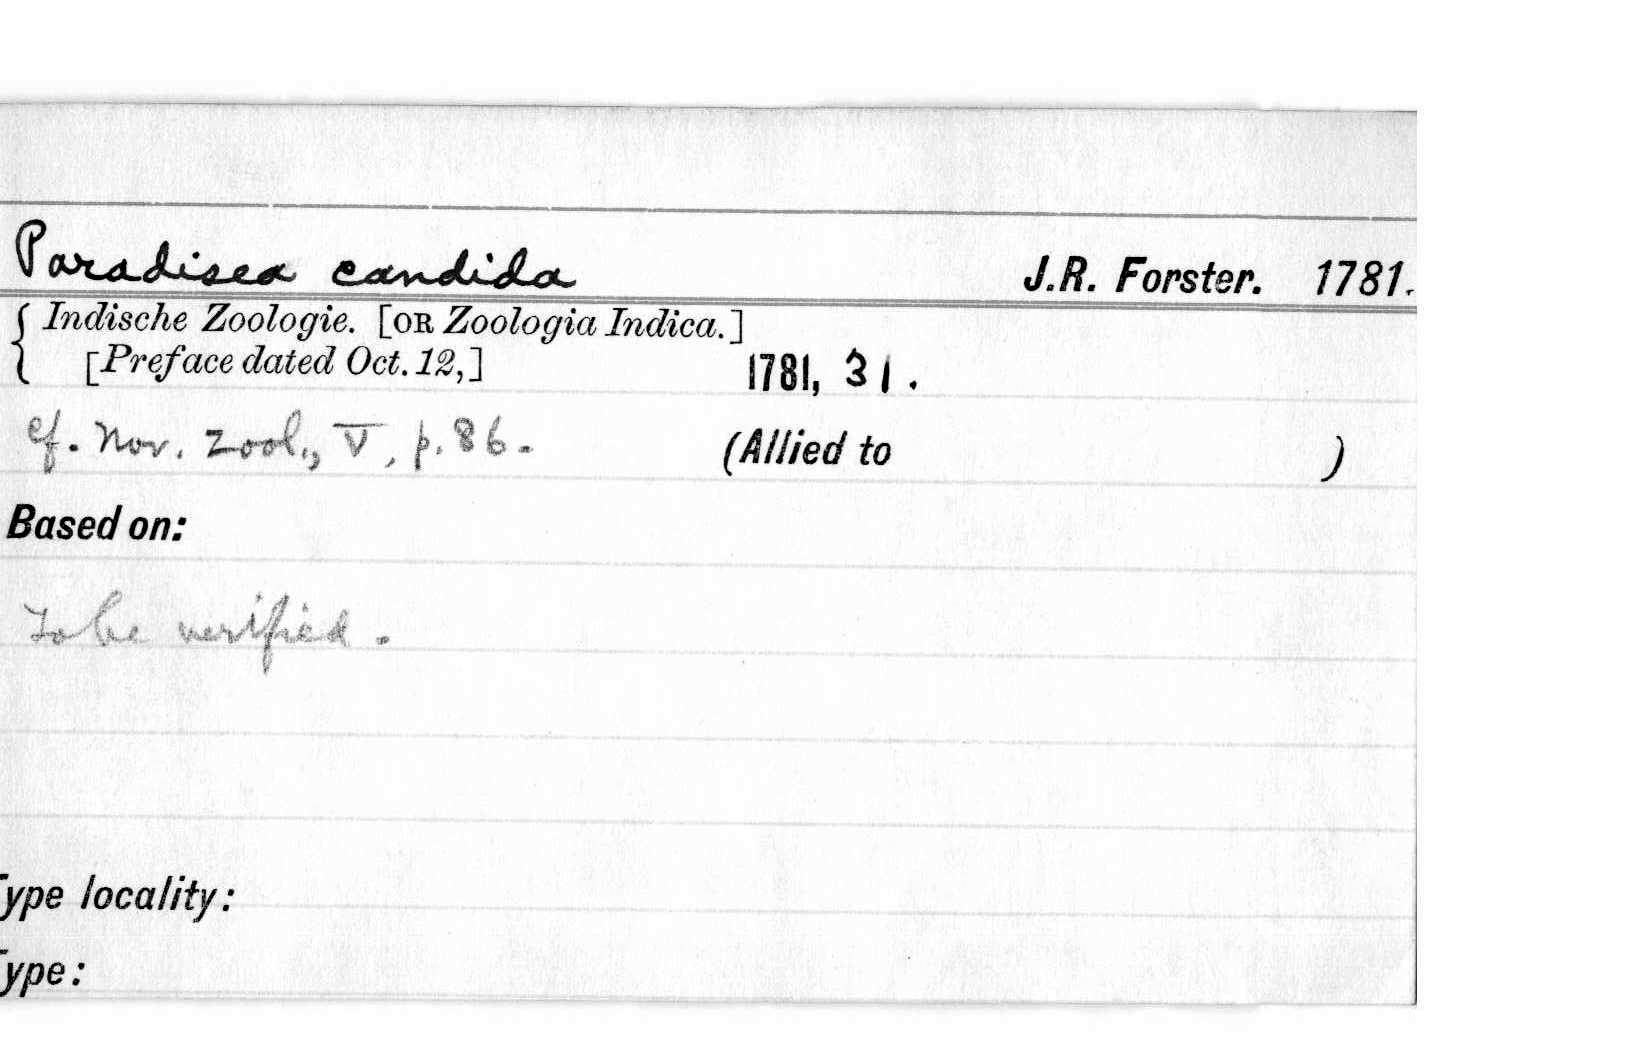 Paradisea candida J.R. Forster. 1781.
{ Indische Zoologie. [OR Zoologia Indica.]
[Preface dated Oct. 12,] 1781, 31.
cf. Nov. Zool., V, p. 86. (Allied to )
Based on:
To be verified.
Type locality:
Type: